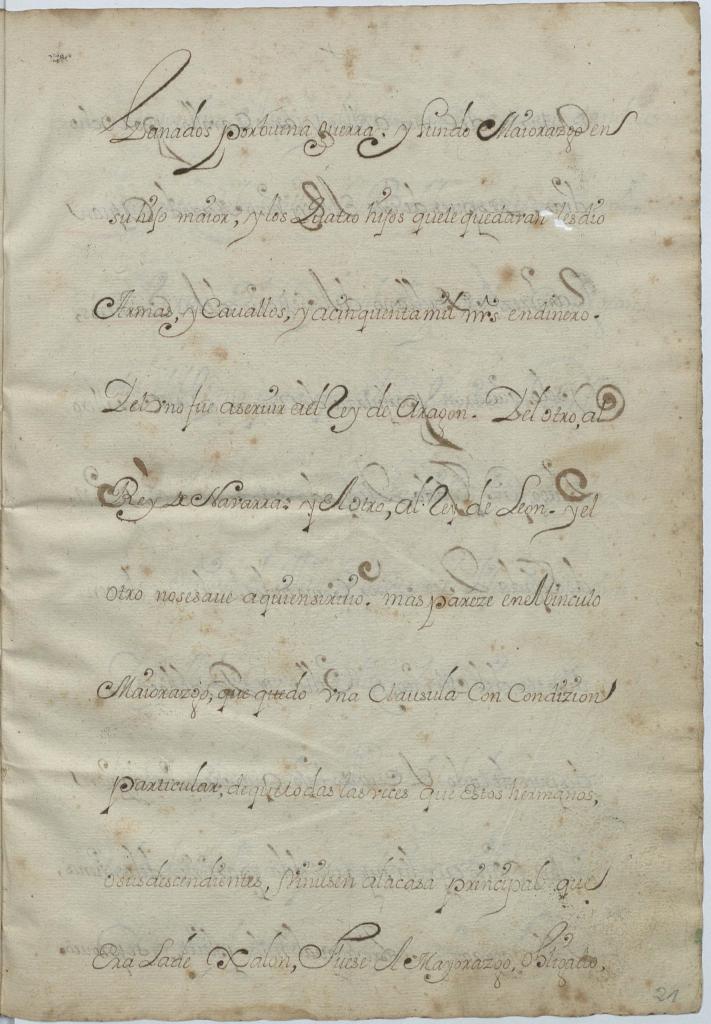 Ganados por buena guerra. y fundo Maiorazgo en
su hijo maior, y los Quatro hijos que le quedaran les dio
Armas, y Cavallos, y a cinquenta mil mrs en dinero.
Del vno fue a servir a el Rey de Aragon. Del otro, al
Rey de Navarra: y El otro, al Rey de Leon. y el
otro no se save a quien sirvio. mas pareze en el vinculo
Maiorazgo, que quedo vna Clausula Con Condizion
particular, de que todas las vezes que estos hermanos,
o sus descendientes, viniesen a la casa principal que
Era La de Xalon, Fuese el Mayorazgo, obligado,
21